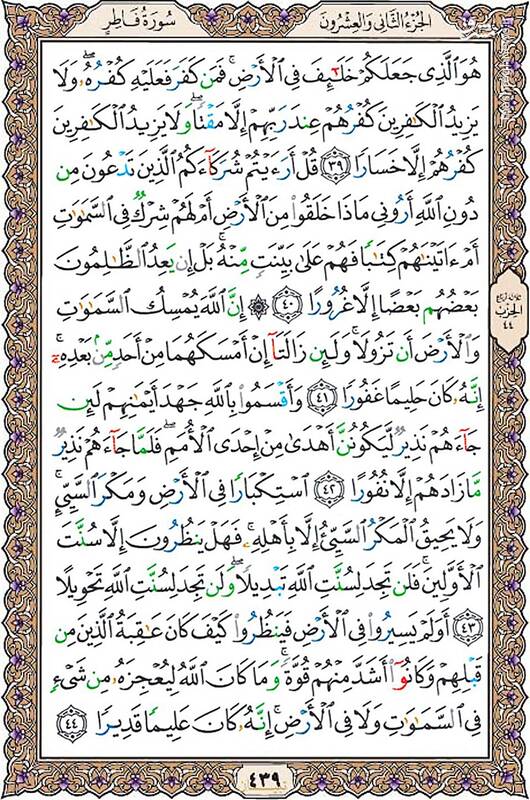 الجزء الثانى والعشرون
سورة فاطر
هُوَ ٱلَّذِى جَعَلَكُمْ خَلَٰٓئِفَ فِى ٱلْأَرْضِ ۚ فَمَن كَفَرَ فَعَلَيْهِ كُفْرُهُۥ ۖ وَلَا
يَزِيدُ ٱلْكَٰفِرِينَ كُفْرُهُمْ عِندَ رَبِّهِمْ إِلَّا مَقْتًا ۖ وَلَا يَزِيدُ ٱلْكَٰفِرِينَ
كُفْرُهُمْ إِلَّا خَسَارًا ٣٩ قُلْ أَرَءَيْتُمْ شُرَكَآءَكُمُ ٱلَّذِينَ تَدْعُونَ مِن
دُونِ ٱللَّهِ أَرُونِى مَاذَا خَلَقُوا۟ مِنَ ٱلْأَرْضِ أَمْ لَهُمْ شِرْكٌ فِى ٱلسَّمَٰوَٰتِ
أَمْ ءَاتَيْنَٰهُمْ كِتَٰبًا فَهُمْ عَلَىٰ بَيِّنَتٍ مِّنْهُ ۚ بَلْ إِن يَعِدُ ٱلظَّٰلِمُونَ
بَعْضُهُم بَعْضًا إِلَّا غُرُورًا ٤٠ ۞ إِنَّ ٱللَّهَ يُمْسِكُ ٱلسَّمَٰوَٰتِ
وَٱلْأَرْضَ أَن تَزُولَا ۚ وَلَئِن زَالَتَآ إِنْ أَمْسَكَهُمَا مِنْ أَحَدٍ مِّنۢ بَعْدِهِۦٓ ۚ
إِنَّهُۥ كَانَ حَلِيمًا غَفُورًا ٤١ وَأَقْسَمُوا۟ بِٱللَّهِ جَهْدَ أَيْمَٰنِهِمْ لَئِن
جَآءَهُمْ نَذِيرٌ لَّيَكُونُنَّ أَهْدَىٰ مِنْ إِحْدَى ٱلْأُمَمِ ۖ فَلَمَّا جَآءَهُمْ نَذِيرٌ
مَّا زَادَهُمْ إِلَّا نُفُورًا ٤٢ ٱسْتِكْبَارًا فِى ٱلْأَرْضِ وَمَكْرَ ٱلسَّيِّئِ ۚ
وَلَا يَحِيقُ ٱلْمَكْرُ ٱلسَّيِّئُ إِلَّا بِأَهْلِهِۦ ۚ فَهَلْ يَنظُرُونَ إِلَّا سُنَّتَ
ٱلْأَوَّلِينَ ۚ فَلَن تَجِدَ لِسُنَّتِ ٱللَّهِ تَبْدِيلًا ۖ وَلَن تَجِدَ لِسُنَّتِ ٱللَّهِ تَحْوِيلًا
٤٣ أَوَلَمْ يَسِيرُوا۟ فِى ٱلْأَرْضِ فَيَنظُرُوا۟ كَيْفَ كَانَ عَٰقِبَةُ ٱلَّذِينَ مِن
قَبْلِهِمْ وَكَانُوٓا۟ أَشَدَّ مِنْهُمْ قُوَّةً ۚ وَمَا كَانَ ٱللَّهُ لِيُعْجِزَهُۥ مِن شَىْءٍ
فِى ٱلسَّمَٰوَٰتِ وَلَا فِى ٱلْأَرْضِ ۚ إِنَّهُۥ كَانَ عَلِيمًا قَدِيرًا ٤٤
الحزب
٤٤
٤٣٩